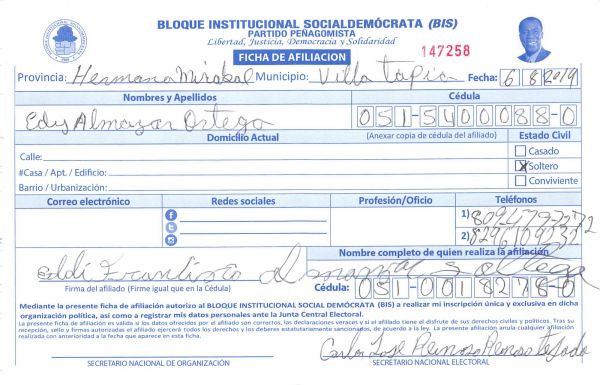 BLOQUE INSTITUCIONAL SOCIALDEMÓCRATA (BIS)
PARTIDO PEÑAGOMISTA
Libertad, Justicia, Democracia y Solidaridad
FICHA DE AFILIACION
147258
Provincia: Hermana Mirabal Municipio: Villa Tapia Fecha: 6/8/2019
Nombres y Apellidos Cédula
Edy Almazar Ortega 051-5400088-0
Domicilio Actual (Anexar copia de cédula del afiliado) Estado Civil
Calle: Casado
#Casa / Apt. / Edificio: X Soltero
Barrio / Urbanización: Conviviente
Correo electrónico Redes sociales Profesión/Oficio Teléfonos
1)
2) 8296109232
Nombre completo de quien realiza la afiliación
Firma del afiliado (Firme igual que en la Cédula) Cédula: 051-0018278-0
Mediante la presente ficha de afiliación autorizo al BLOQUE INSTITUCIONAL SOCIAL DEMÓCRATA (BIS) a realizar mi inscripción única y exclusiva en dicha
organización política, así como a registrar mis datos personales ante la Junta Central Electoral.
La presente ficha de afiliación es válida si los datos ofrecidos por el afiliado son correctos, las declaraciones veraces y si el afiliado tiene el disfrute de sus derechos civiles y políticos. Tras su
recepción, sello y firmas autorizadas el afiliado ejercerá todos los derechos y los deberes estatutariamente sancionados, de acuerdo a la ley. La presente afiliación anula cualquier afiliación
realizada con anterioridad a la fecha que aparece en esta ficha.
Carlos José Reinoso
SECRETARIO NACIONAL DE ORGANIZACIÓN SECRETARIO NACIONAL ELECTORAL